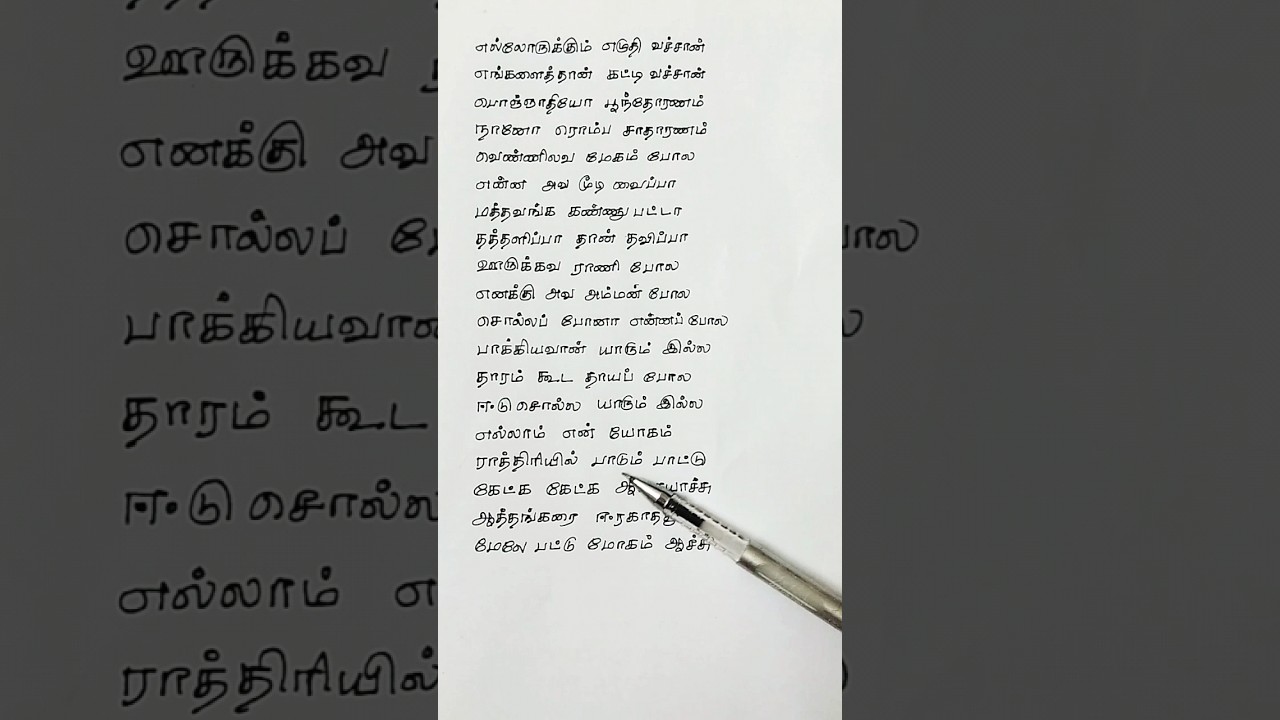 எல்லோருக்கும் எழுதி வச்சான்
எங்களைத்தான் கட்டி வச்சான்
பொஞ்சாதியோ பூந்தோரணம்
நானோ ரொம்ப சாதாரணம்
வெண்ணிலவ மேகம் போல
என்ன அவ மூடி வைப்பா
மத்தவங்க கண்ணு பட்டா
தத்தளிப்பா தான் தவிப்பா
ஊருக்கவ ராணி போல
எனக்கு அவ அம்மன் போல
சொல்லப் போனா என்னப் போல
பாக்கியவான் யாரும் இல்ல
தாரம் கூட தாயப் போல
ஈடு சொல்ல யாரும் இல்ல
எல்லாம் என் யோகம்
ராத்திரியில் பாடும் பாட்டு
கேட்க கேட்க
ஆத்தங்கரை
மேலே பட்டு மோகம் ஆச்சு